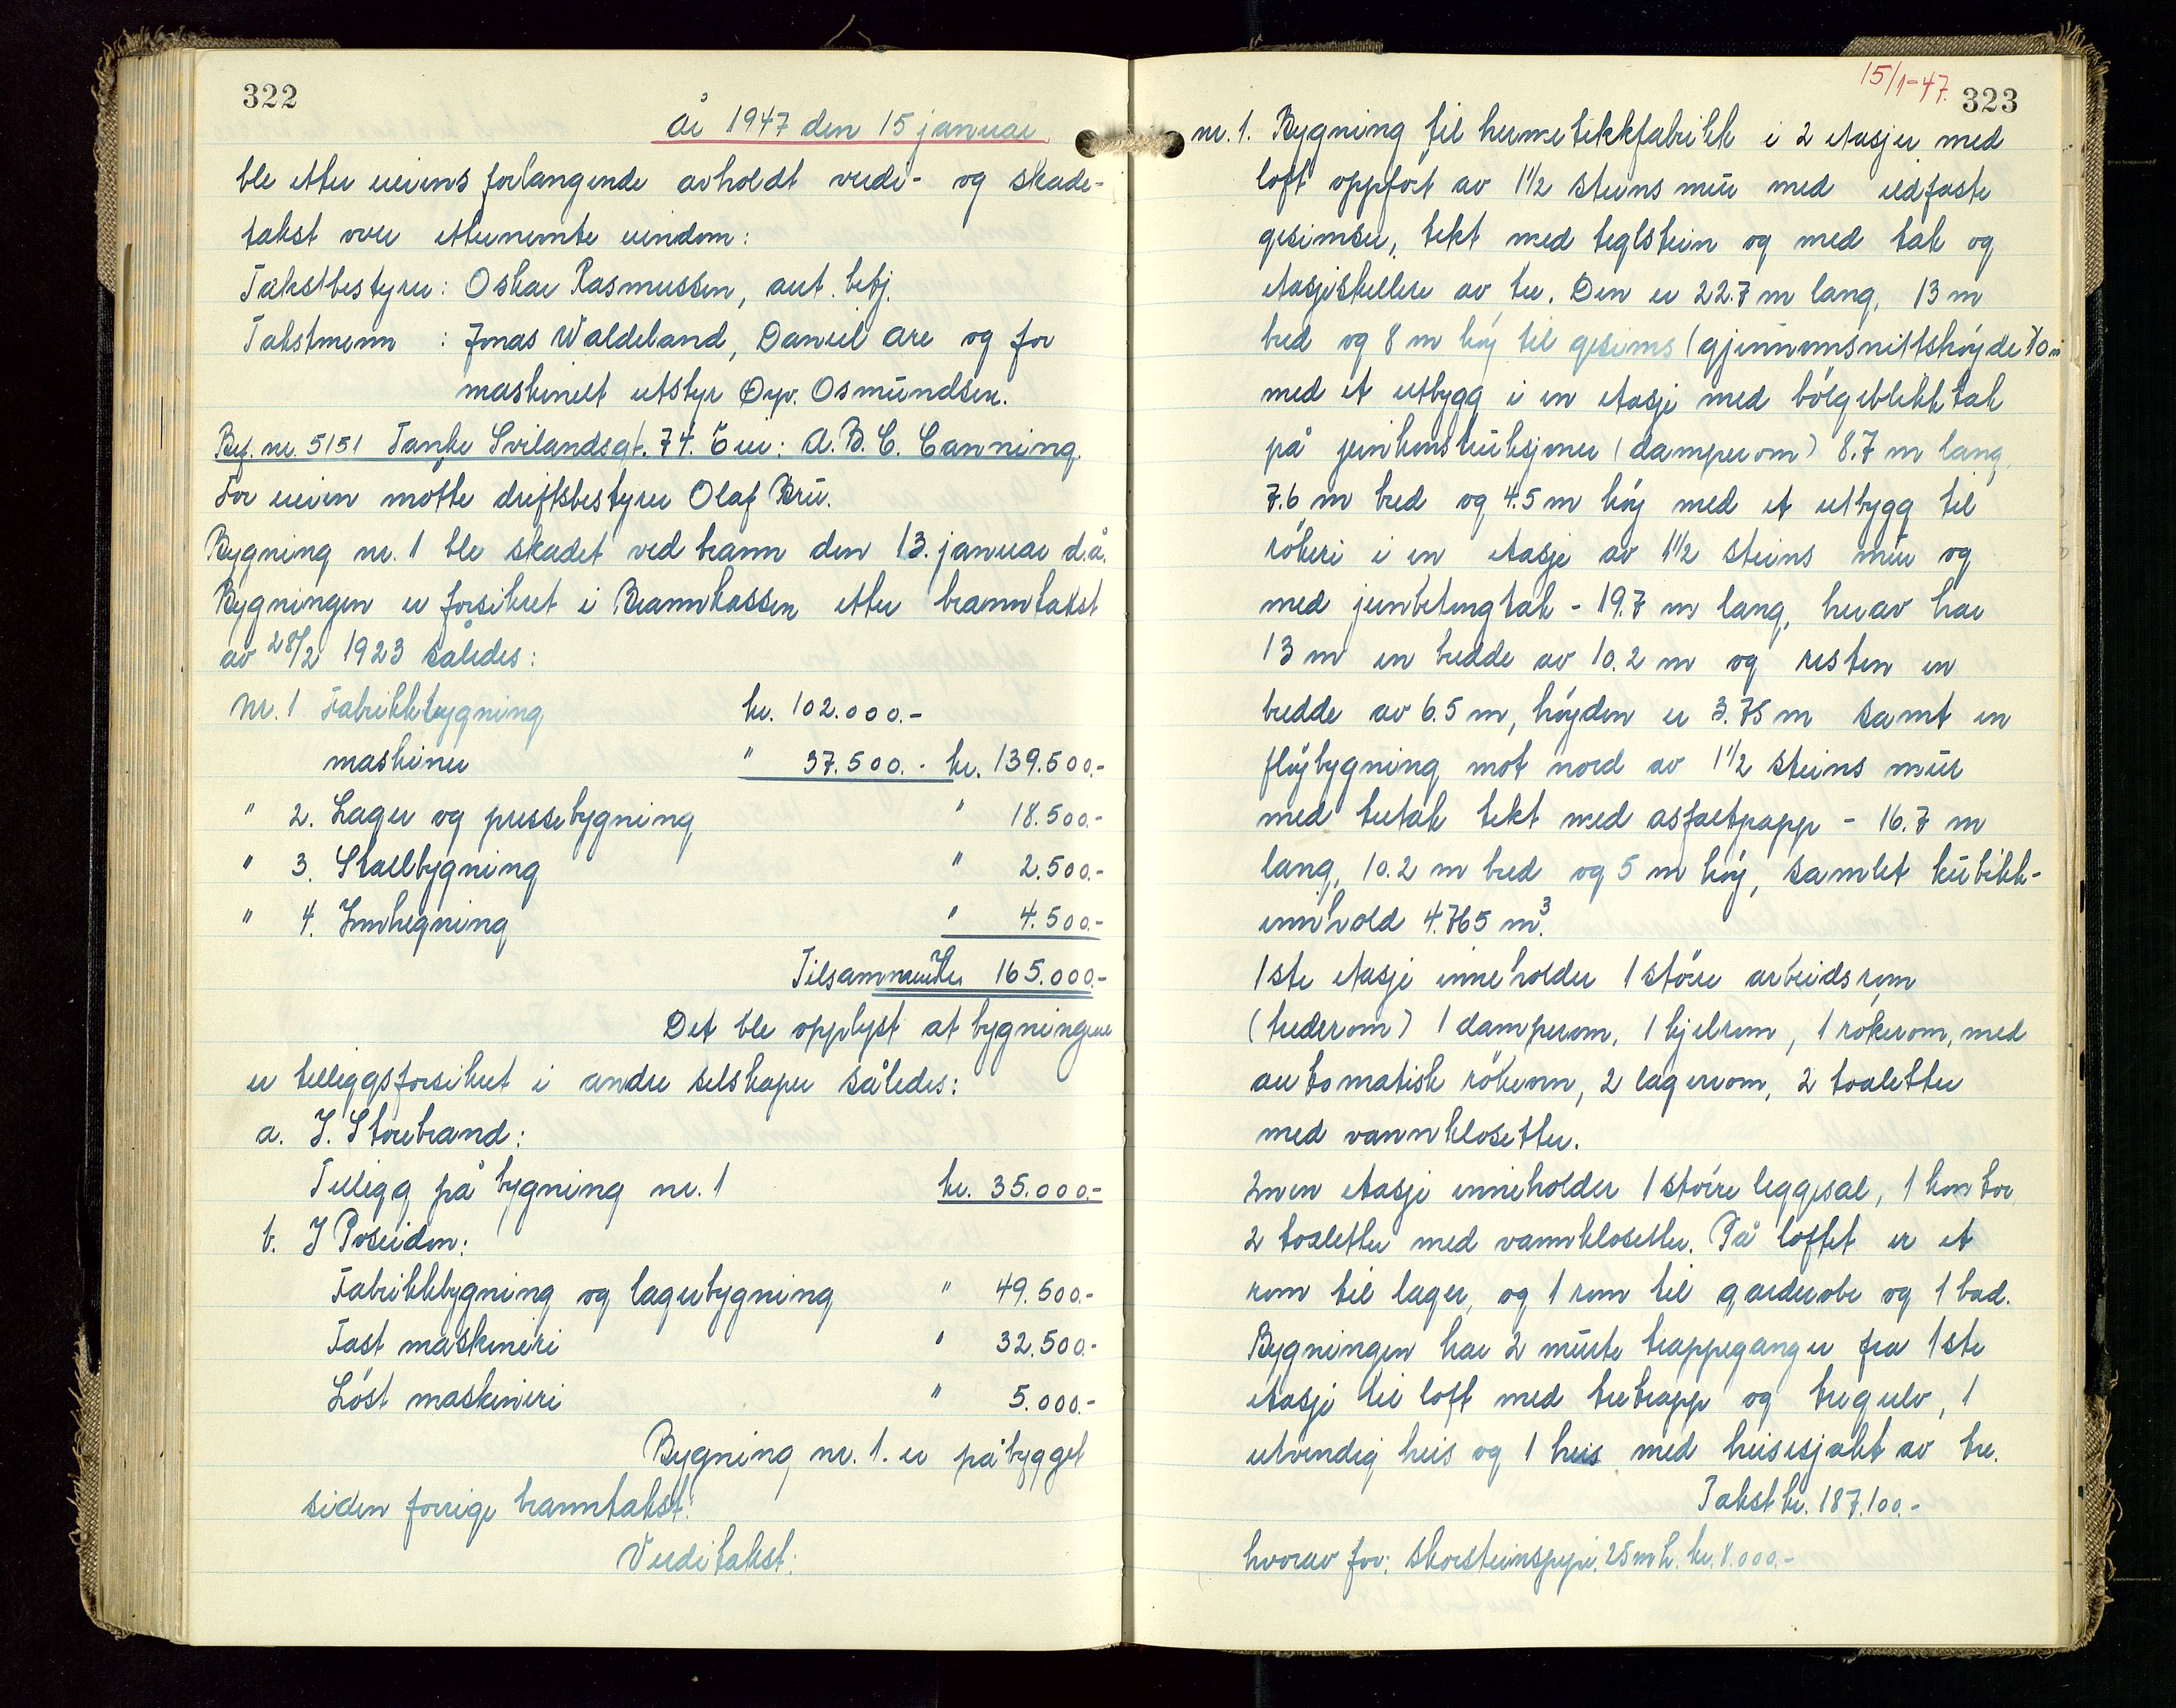 322
År 1947 den 15 januar
ble etter eierens forlangende avholdt verdi- og skade-
takst over etternevnte eiendom:
Takstbestyrer: Oskar Rasmussen, aut. bebj.
Takstmenn : Jonas Waldeland, Daniel Are og for
maskinelt utstyr Øyv. Osmundsen.
Byg. nr. 5131 Tanke Svilandsgt. 74. Eier: A.B.C. Canning.
For eieren møtte driftsbestyrer Olaf Bru.
Bygning nr. 1 ble skadet ved brann den 13. januar d.å.
Bygningen er forsikret i Brannkassen etter branntakst
av 28/2 1923 således:
Nr. 1 Fabrikkbygning kr. 102.000.-
maskiner " 37.500.- kr. 139.500.-
" 2. Lager og pressebygning " 18.500.-
" 3. Stallbygning " 2.500.-
" 4. Innhegning " 4.500.-
Tilsammen kr. 165.000.-
Det ble opplyst at bygningene
er tilleggsforsikret i andre selskaper således:
a. I. Storebrand:
Tillegg på bygning nr. 1 kr. 35.000.-
b. I Poseidon:
Fabrikkbygning og lagerbygning " 49.500.-
Fast maskineri " 32.500.-
Løst maskineri " 5.000.-
Bygning nr. 1. er påbygget
siden forrige branntakst:
Verditakst:
15/1-47.
323
nr. 1. Bygning til hermetikkfabrikk i 2 etasjer med
loft oppført av 1 1/2 steins mur med ildfaste
gesimser, tekt med teglstein og med tak og
etasjeskillere av tre. Den er 22.7 m lang, 13 m
bred og 8 m høy til gesims (gjennomsnittshøyde 10 m
med et utbygg i en etasje med bølgeblikktak
på jernkonstruksjoner (damperom) 8.7 m lang,
7.6 m bred og 4.5 m høy med et utbygg til
røkeri i en etasje av 1 1/2 steins mur og
med jernbetongtak - 19.7 m lang, herav har
13 m en bredde av 10.2 m og resten en
bredde av 6.5 m, høyden er 3.75 m samt en
fløybygning mot nord av 1 1/2 steins mur
med tretak tekt med asfaltpapp - 16.7 m
lang, 10.2 m bred og 5 m høy, samlet kubikk-
innhold 4.765 m³.
1ste etasje inneholder 1 større arbeidsrom
(trederom) 1 damperom, 1 kjelrom, 1 røkerom, med
automatisk røkovn, 2 lagerrom, 2 toaletter
med vannklosetter.
2nen etasje inneholder 1 større leggesal, 1 kontor,
2 toaletter med vannklosetter. På loftet er et
rom til lager, og 1 rom til garderobe og 1 bad.
Bygningen har 2 murte trappeganger fra 1ste
etasje til loft med tretrapp og tregulv, 1
utvendig heis og 1 heis med heisesjakt av tre.
Takst kr. 187.100.-
hvorav for: skorsteinspipe. 25 m h. kr. 8.000.-